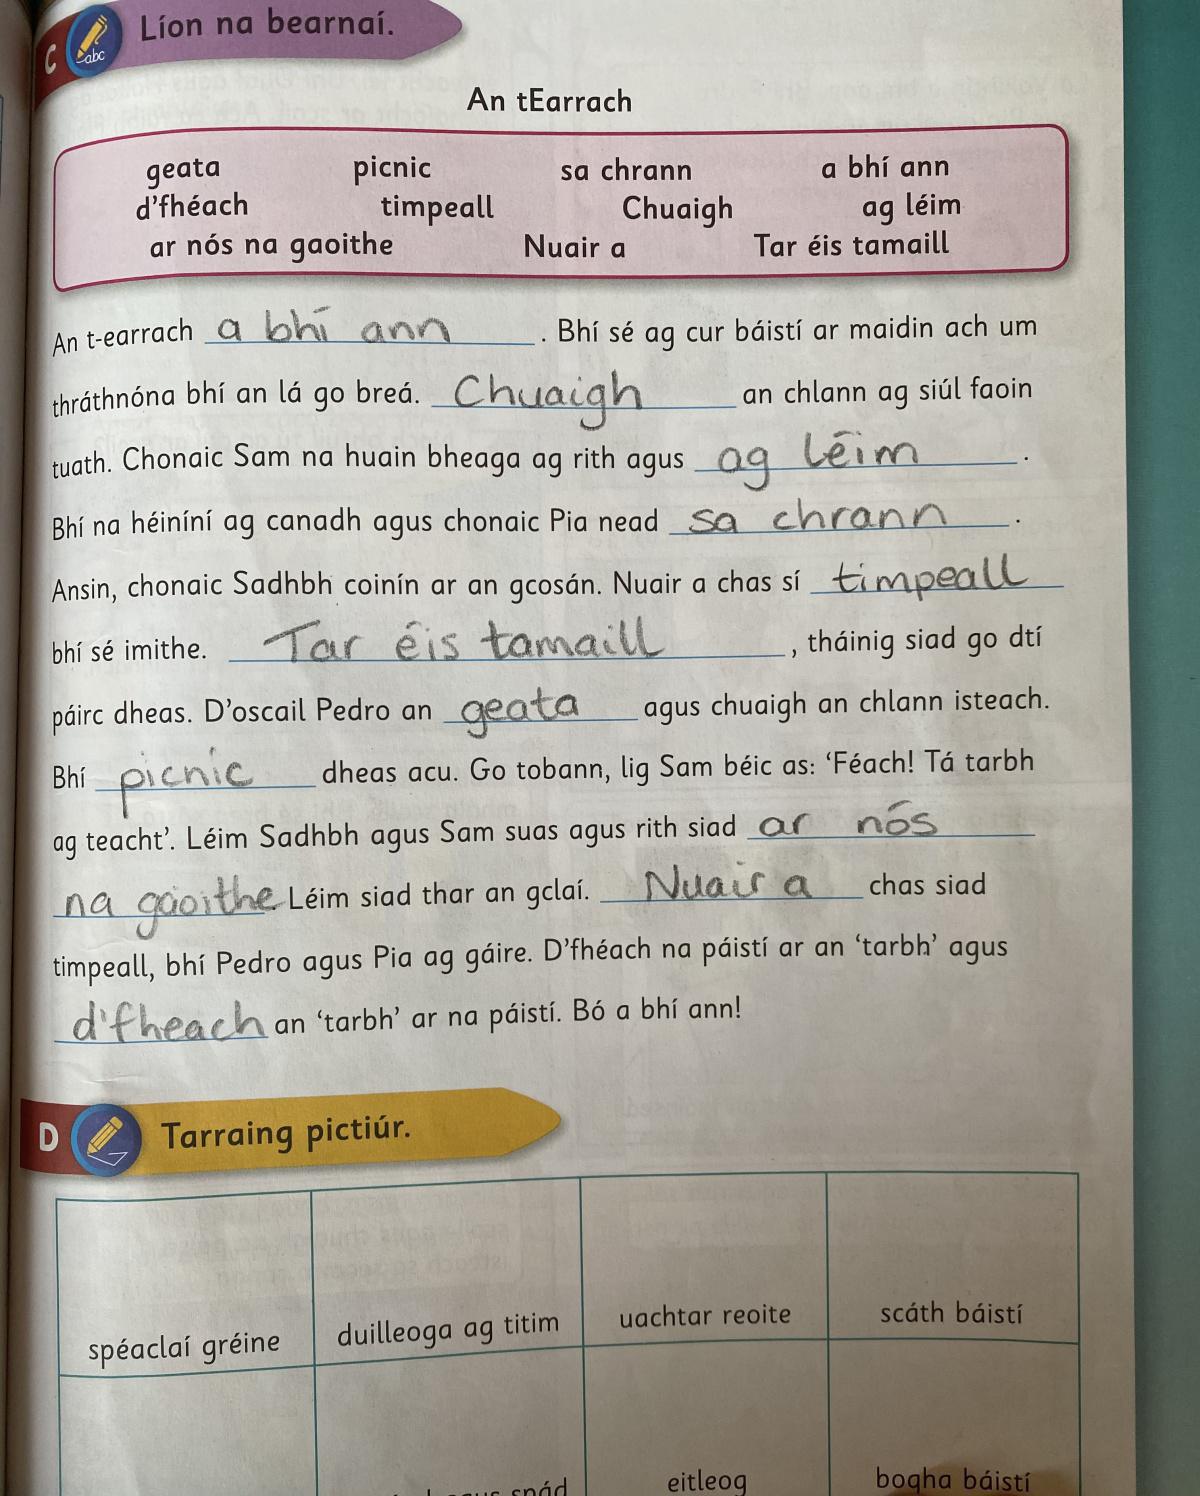 C abc Líon na bearnaí.
An tEarrach
geata picnic sa chrann a bhí ann
d'fhéach timpeall Chuaigh ag léim
ar nós na gaoithe Nuair a Tar éis tamaill
An t-earrach a bhí ann . Bhí sé ag cur báistí ar maidin ach um
thráthnóna bhí an lá go breá. Chuaigh an chlann ag siúl faoin
tuath. Chonaic Sam na huain bheaga ag rith agus ag léim .
Bhí na héiníní ag canadh agus chonaic Pia nead sa chrann .
Ansin, chonaic Sadhbh coinín ar an gcosán. Nuair a chas sí timpeall
bhí sé imithe. Tar éis tamaill , tháinig siad go dtí
páirc dheas. D'oscail Pedro an geata agus chuaigh an chlann isteach.
Bhí picnic dheas acu. Go tobann, lig Sam béic as: 'Féach! Tá tarbh
ag teacht'. Léim Sadhbh agus Sam suas agus rith siad ar nós
na gaoithe. Léim siad thar an gclaí. Nuair a chas siad
timpeall, bhí Pedro agus Pia ag gáire. D'fhéach na páistí ar an 'tarbh' agus
d'fheach an 'tarbh' ar na páistí. Bó a bhí ann!
D Tarraing pictiúr.
spéaclaí gréine duilleoga ag titim uachtar reoite scáth báistí
spád eitleog bogha báistí